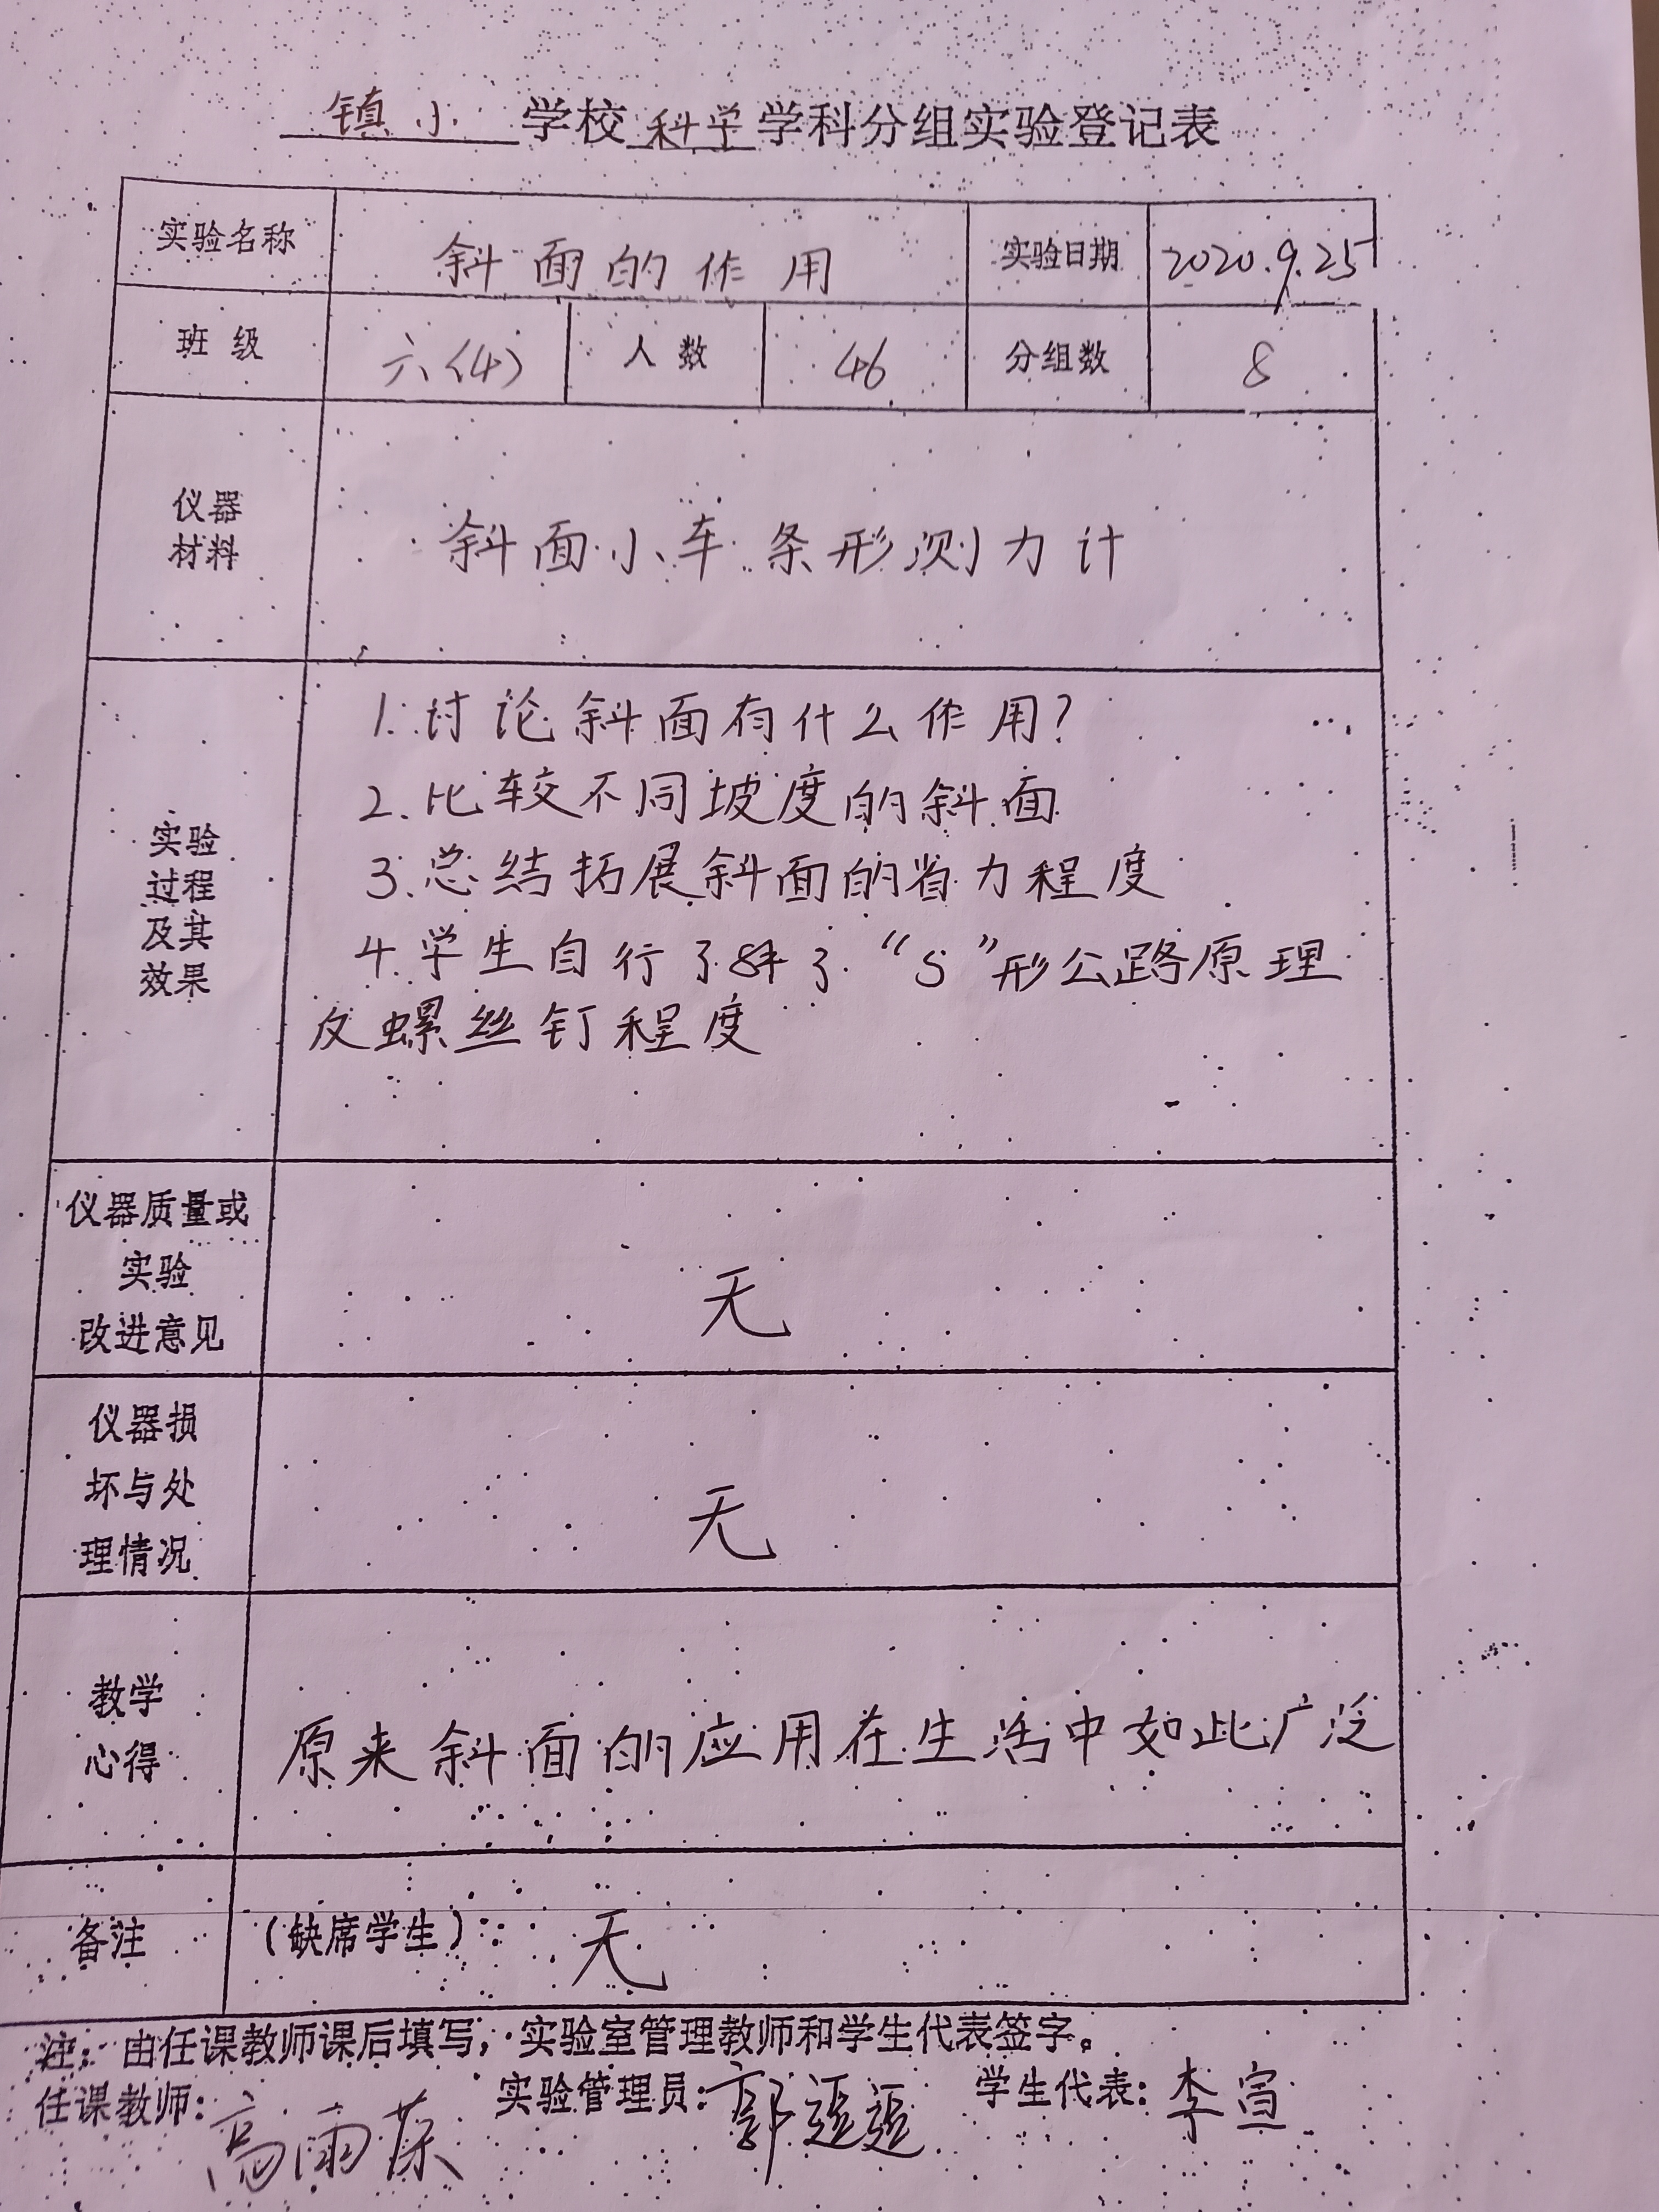 镇小 学校 科学 学科分组实验登记表
实验名称 斜面的作用 实验日期 2020.9.25
班 级 六(4) 人 数 46 分组数 8
仪器
材料
斜面小车 条形测力计
实验
过程
及其
效果
1.讨论斜面有什么作用?
2.比较不同坡度的斜面
3.总结拓展斜面的省力程度
4.学生自行了解了“S”形公路原理
及螺丝钉程度
仪器质量或
实验
改进意见
无
仪器损
坏与处
理情况
无
教学
心得
原来斜面的应用在生活中如此广泛
备注 (缺席学生): 无
注: 由任课教师课后填写, 实验室管理教师和学生代表签字。
任课教师: 高雨 实验管理员: 郭 学生代表: 李宣